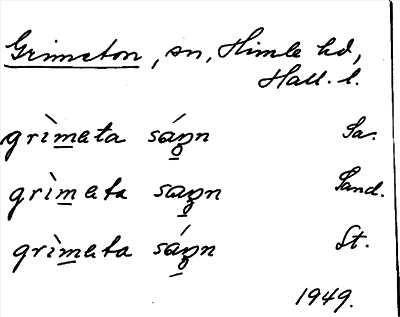 Grimeton, sn, Himle hd,
Hall. l.
grìmata sáҙn Sa.
grìmata saҙn Sand.
grìmata sáҙn St.
1949.